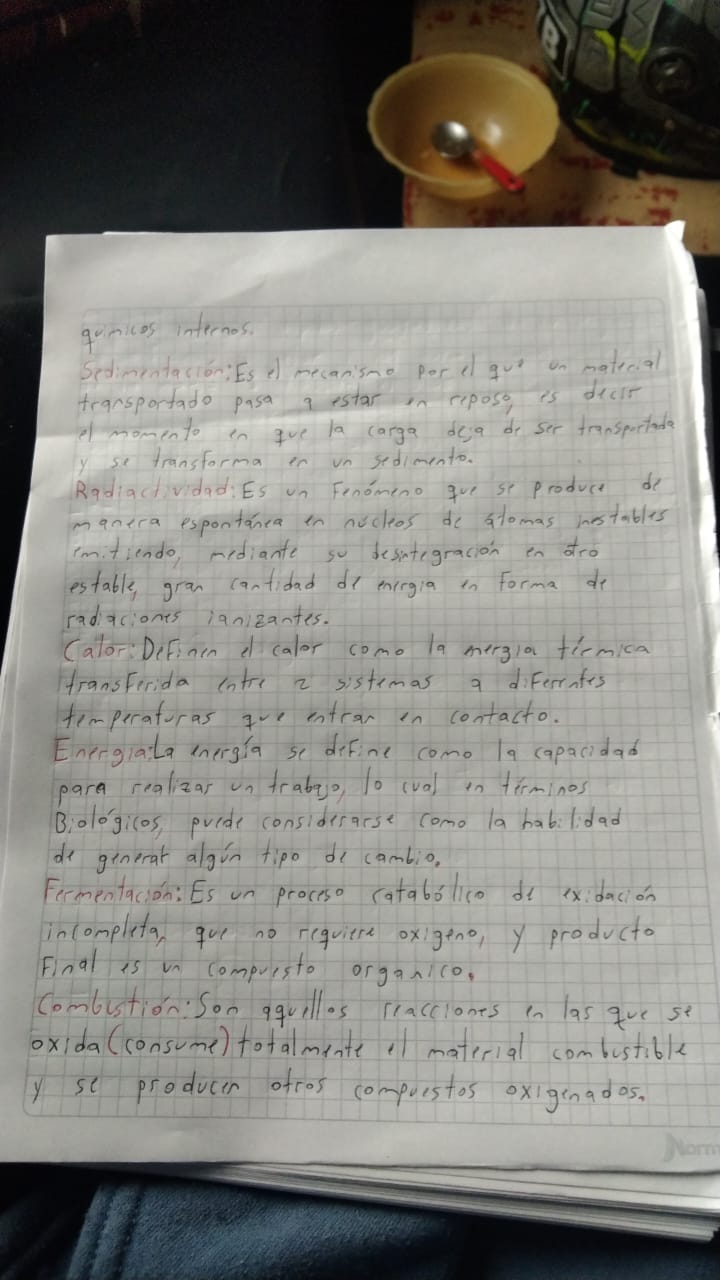 químicos internos.
Sedimentación: Es el mecanismo por el que un material
transportado pasa a estar en reposo, es decir
el momento en que la carga deja de ser transportada
y se transforma en un sedimento.
Radiactividad: Es un Fenómeno que se produce de
manera espontánea en núcleos de átomos inestables
emitiendo, mediante su desintegración en otro
estable, gran cantidad de energia en forma de
radiaciones ianizantes.
Calor: Definen el calor como la energia térmica
transferida entre 2 sistemas a diferentes
temperaturas que entran en contacto.
Energia: La energía se define como la capacidad
para realizar un trabajo, lo cual en términos
Biológicos, puede considerarse como la habilidad
de generar algún tipo de cambio.
Fermentación: Es un proceso catabólico de oxidación
incompleta, que no requiere oxígeno, y producto
Final es un compuesto orgánico.
Combustión: Son aquellos reacciones en las que se
oxida (consume) totalmente el material combustible
y se producen otros compuestos oxigenados.
Norm